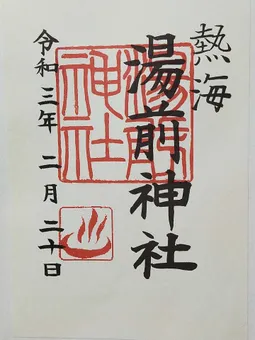 熱海
湯前神社
湯前神社
令和三年 二月 二十日